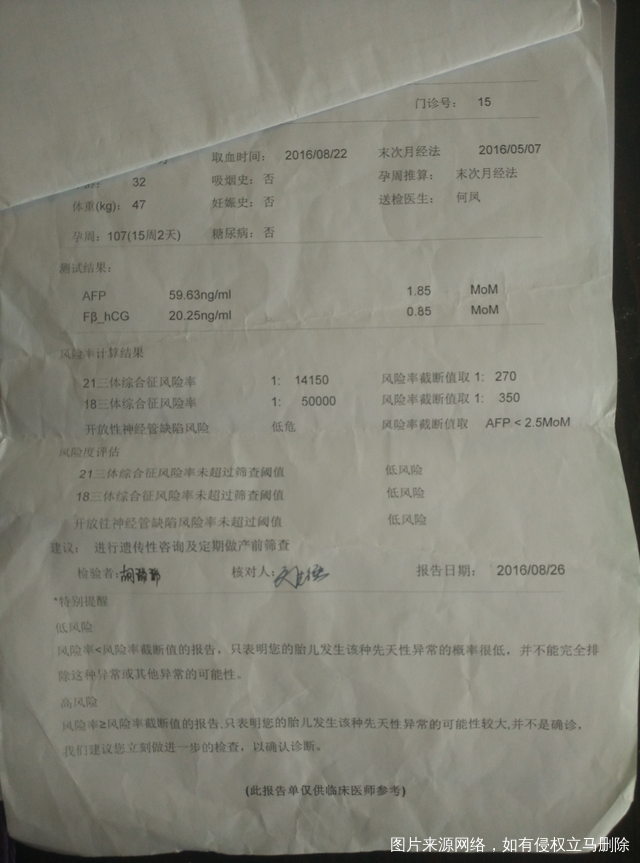 门诊号： 15
取血时间： 2016/08/22 末次月经法 2016/05/07
32 吸烟史：否 孕周推算：末次月经法
体重(kg)： 47 妊娠史：否 送检医生：何凤
孕周：107(15周2天) 糖尿病：否
测试结果：
AFP 59.63ng/ml 1.85 MoM
Fβ_hCG 20.25ng/ml 0.85 MoM
风险率计算结果
21三体综合征风险率 1: 14150 风险率截断值取 1: 270
18三体综合征风险率 1: 50000 风险率截断值取 1: 350
开放性神经管缺陷风险 低危 风险率截断值取 AFP < 2.5MoM
风险度评估
21三体综合征风险率未超过筛查阈值 低风险
18三体综合征风险率未超过筛查阈值 低风险
开放性神经管缺陷风险率未超过阈值 低风险
建议： 进行遗传性咨询及定期做产前筛查
检验者： 核对人： 报告日期： 2016/08/26
*特别提醒
低风险
风险率<风险率截断值的报告，只表明您的胎儿发生该种先天性异常的概率很低，并不能完全排
除这种异常或其他异常的可能性。
高风险
风险率≥风险率截断值的报告,只表明您的胎儿发生该种先天性异常的可能性较大,并不是确诊，
我们建议您立刻做进一步的检查，以确认诊断。
(此报告单仅供临床医师参考)
图片来源网络，如有侵权立马删除